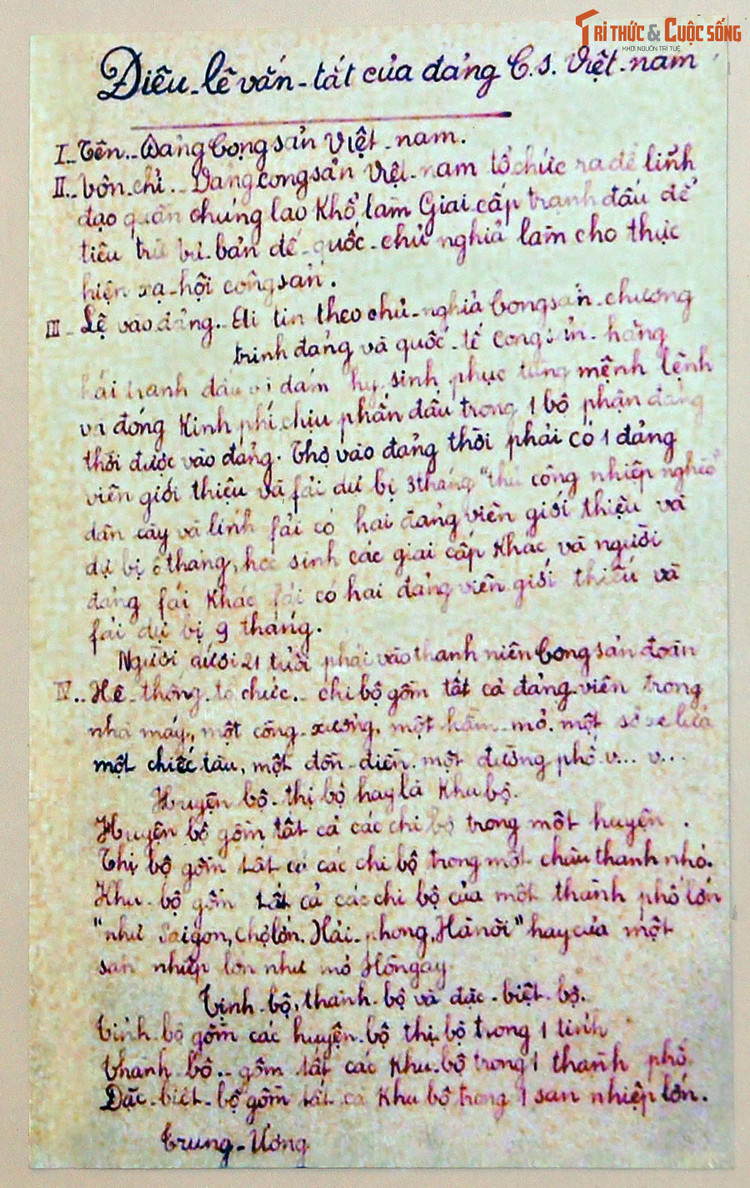 TRI THỨC & CUỘC SỐNG
KHƠI NGUỒN TRI TUỆ
Điều-lệ vắn-tắt của đảng C.S. Việt-nam
I- Tên.- Đảng Cộng sản Việt-nam.
II.. Tôn chỉ.. Đảng cộng sản Việt-nam tổ chức ra để lĩnh
đạo quần chúng lao khổ làm Giai cấp tranh đấu để
tiêu trừ tư bản đế-quốc-chủ nghĩa làm cho thực
hiện xạ-hội cộng sản.
III- Lệ vào đảng.. Ai tin theo chủ-nghĩa Cộng sản-chương
trình đảng và quốc-tế cộng sản-hăng
hái tranh đấu và dám hy sinh phục tùng mệnh lệnh
và đóng kinh phí, chịu phấn đấu trong 1 bộ phận đảng
thời được vào đảng. Thợ vào đảng thời phải có 1 đảng
viên giới thiệu và fải dự bị 3 tháng "thủ công nghiệp nghèo"
dân cày và lính fải có hai đảng viên giới thiệu và
dự bị 6 tháng, học sinh các giai cấp khác và người
đảng fái khác fải có hai đảng viên giới thiệu và
fải dự bị 9 tháng.
Người dưới 21 tuổi phải vào thanh niên Cộng sản đoàn
IV.. Hệ-thống-tổ chức.. chi bộ gồm tất cả đảng-viên trong
nhà máy, một công-xưởng, một hầm-mỏ. một sở xe lửa
một chiếc tàu, một đồn-điền. một đường phố v... v...
Huyện bộ-thị bộ hay là Khu bộ.
Huyện bộ gồm tất cả các chi bộ trong một huyện.
Thị bộ gồm tất cả các chi bộ trong một châu thành nhỏ.
Khu-bộ gồm tất cả các chi bộ của một thành phố lớn
"như Saigon, Chợ lớn, Hải-phong, Hà nội" hay của một
sản nhiệp lớn như mỏ Hòn gay
Tỉnh-bộ, thành-bộ và đặc-biệt-bộ.
Tỉnh-bộ gồm các huyện-bộ thị bộ trong 1 tỉnh
Thành bộ.. gồm tất các khu-bộ trong 1 thành phố
Đặc-biệt-bộ gồm tất cả khu bộ trong 1 sản nhiệp lớn.
Trung-Ương